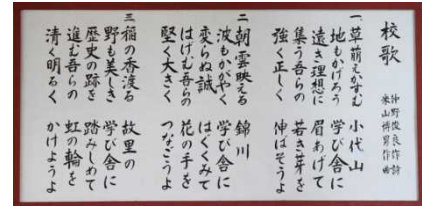 校歌
沖野俊良 作詩
米山博昇 作曲
一 草萠えかすむ 小代山
地もかげろう 学び舎に
遠き理想に 眉あげて
集う吾らの 若き芽を
強く正しく 伸ばそうよ
二 朝雲映える 錦川
波もかがやく 学び舎に
変らぬ誠 はぐくみて
はげむ吾らの 花の手を
堅く大きく つなごうよ
三 稲の香渡る 故里の
野も美しき 学び舎に
歴史の跡を 踏みしめて
進む吾らの 虹の輪を
清く明るく かけようよ